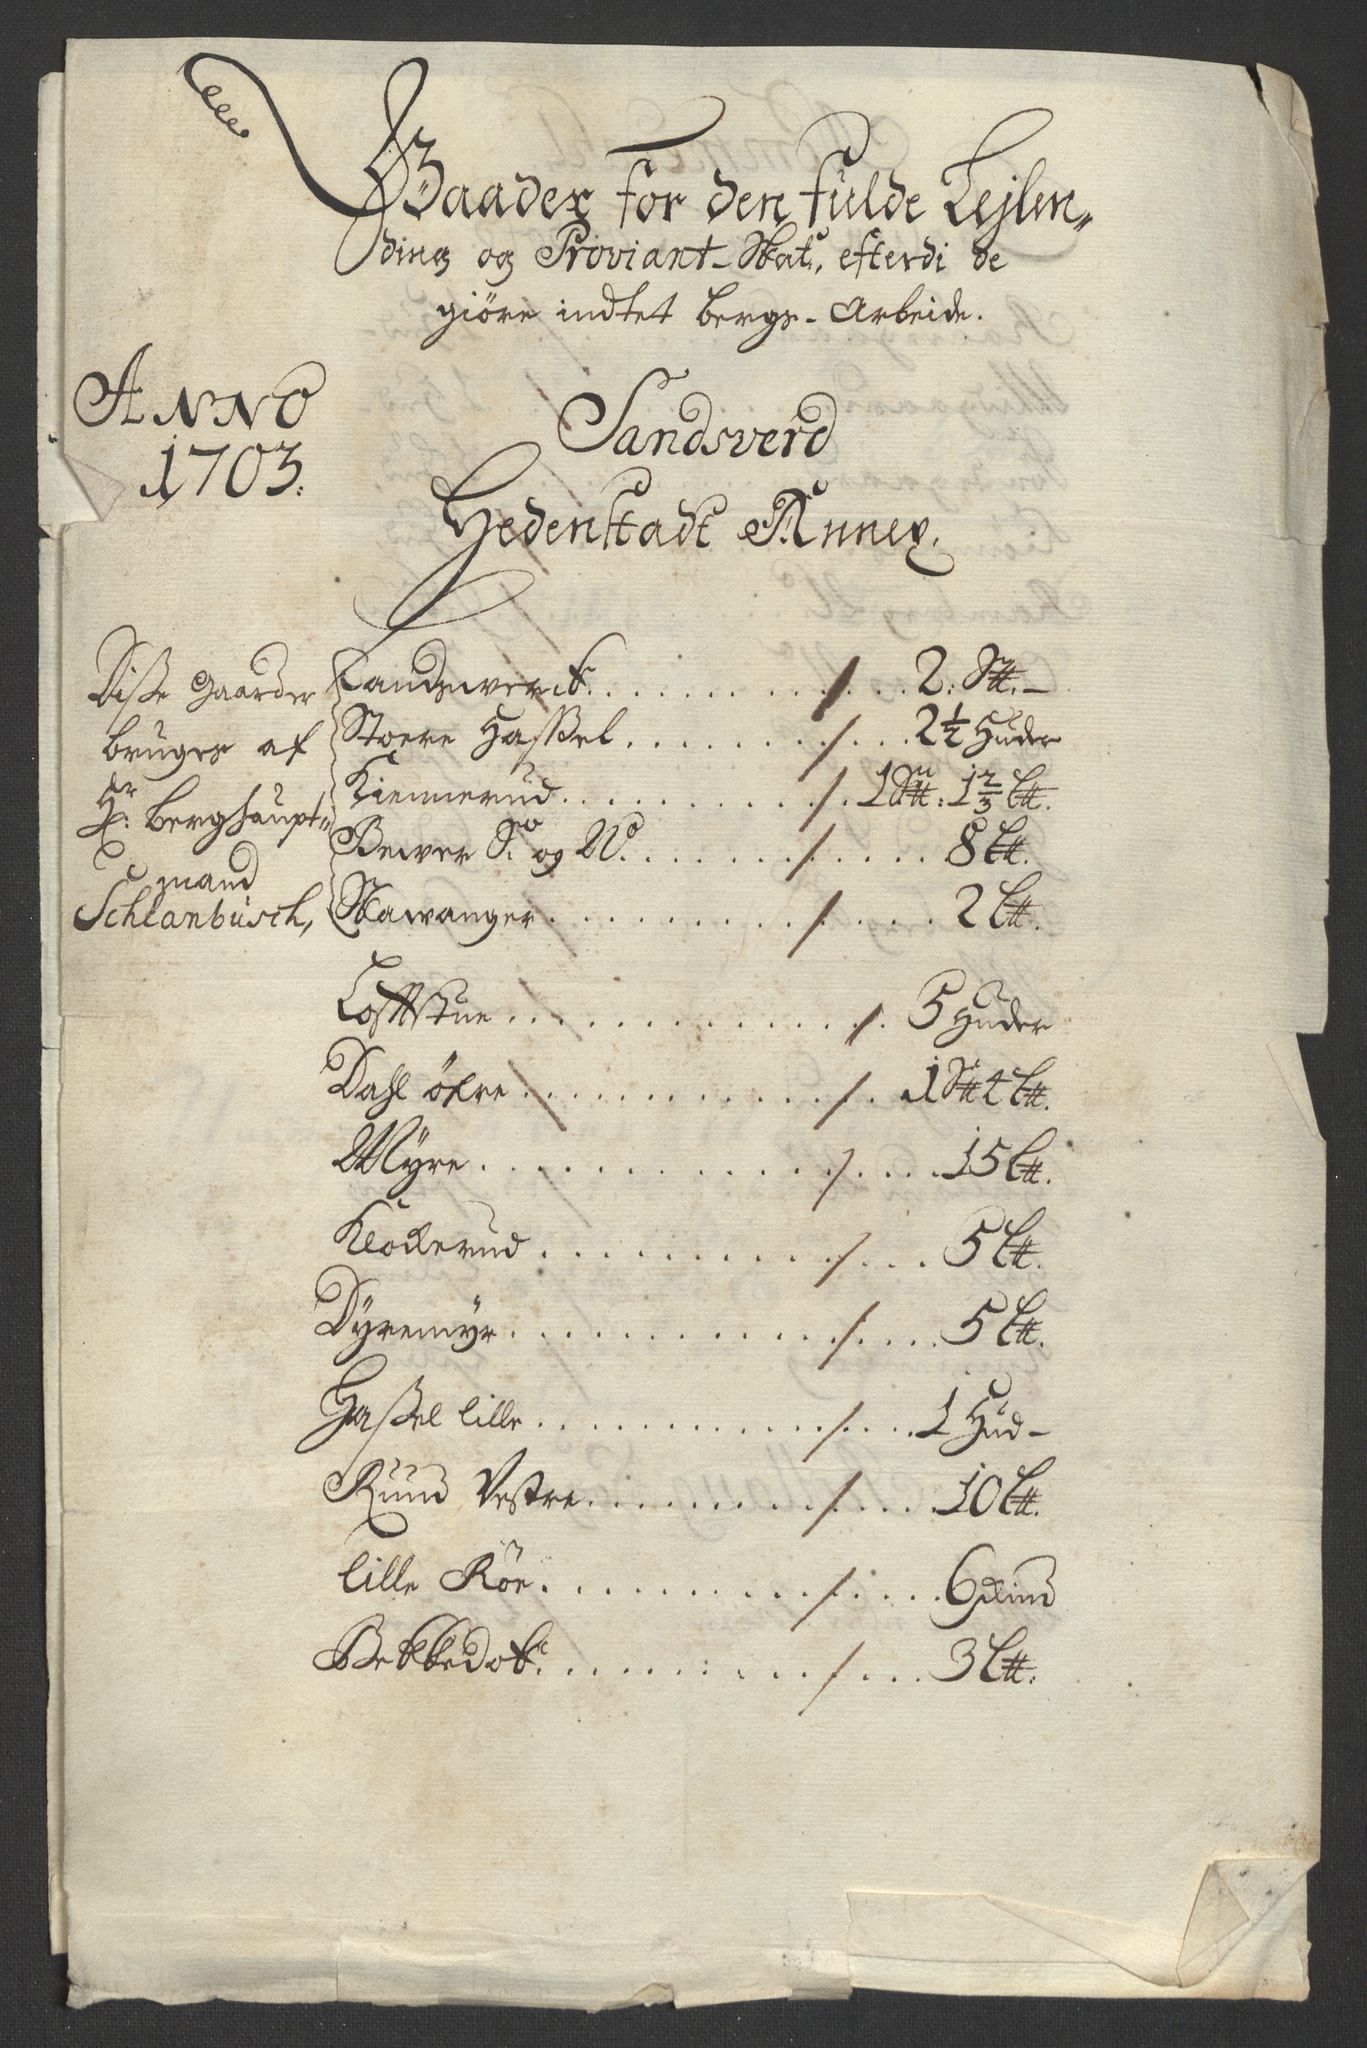 Gaader for den fulde Lejlen„
ding og Proviant-Skat, efterdi de
giöre indtet bergs-Arbeide.
ANNO
1703.
Sandsverd
Hedenstadt Annex.
Disse Gaarder
bruges af
Hr: Berghaupt„
mand
Schlanbusch,
Landsverck . . . 2: S℔.-
Stoere Hassel . . . 2½ Huder
Kiennerud . . . 1 S℔: 1⅔ L℔.
Bewer Sö og N. . . . 8 L℔.
Skawanger . . . 2 L℔.
Lofftstue . . . 5 Huder
Dahl öfre . . . 1 S℔ 4 L℔.
Myre . . . 15 L℔.
Klockerud . . . 5 L℔.
Dyremyr . . . 5 L℔.
Hassel lille . . . 1 Hud-
Ruud Vestre . . . 10 L℔.
lille Röe . . . 6 skind
Bekkedok . . . 3 L℔.